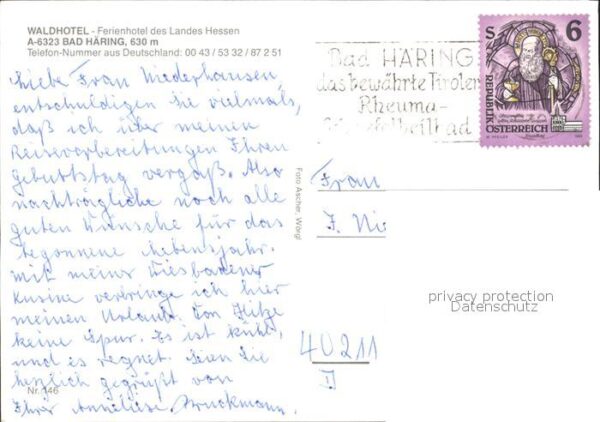 WALDHOTEL - Ferienhotel des Landes Hessen
A-6323 BAD HÄRING, 630 m
Telefon-Nummer aus Deutschland: 00 43 / 53 32 / 87 2 51
Liebe Frau Niederhausen,
entschuldigen Sie vielmals,
daß ich über meinen
Reisevorbereitungen Ihren
Geburtstag vergaß. Also
nachträgliche noch alle
guten Wünsche für das
begonnene Lebensjahr.
Mit meiner Wiesbadener
Kusine verbringe ich hier
meinen Urlaub. Von Hitze
keine Spur. Es ist kühl,
und es regnet. Seien Sie
herzlich gegrüßt von
Ihrer Anneliese Bruckmann.
Nr. 146
Foto Ascher, Wörgl
Bad HÄRING
das bewährte Tiroler
Rheuma-
S 6
REPUBLIK
ÖSTERREICH
Frau
J. Nie
privacy protection
Datenschutz
40211
D